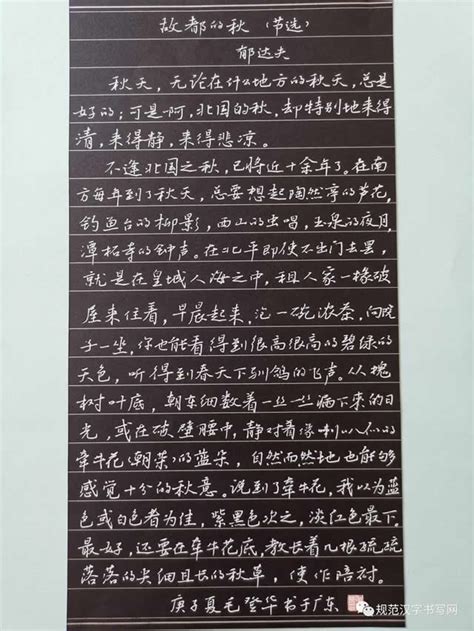 故都的秋（节选）
郁达夫
秋天，无论在什么地方的秋天，总是
好的；可是啊，北国的秋，却特别地来得
清，来得静，来得悲凉。
不逢北国之秋，已将近十余年了。在南
方每年到了秋天，总要想起陶然亭的芦花，
钓鱼台的柳影，西山的虫唱，玉泉的夜月，
潭柘寺的钟声。在北平即使不出门去罢，
就是在皇城人海之中，租人家一椽破
屋来住着，早晨起来，泡一碗浓茶，向院
子一坐，你也能看得到很高很高的碧绿的
天色，听得到青天下驯鸽的飞声。从槐
树叶底，朝东细数着一丝一丝漏下来的日
光，或在破壁腰中，静对着像喇叭似的
牵牛花（朝荣）的蓝朵，自然而然地也能够
感觉十分的秋意。说到了牵牛花，我以为蓝
色或白色者为佳，紫黑色次之，淡红色最下。
最好，还要在牵牛花底，教长着几根疏疏
落落的尖细且长的秋草，使作陪衬。
庚子夏毛登华书于广东
规范汉字书写网